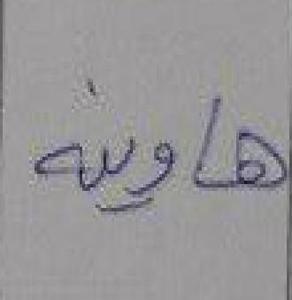 هاوية